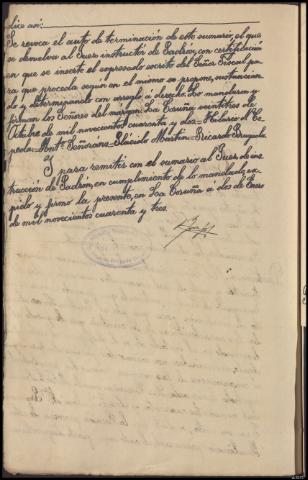 dice así:
Se revoca el auto de terminación de este sumario, el que
se devuelva al Juez instructor de Padrón, con certificación
en que se inserte el expresado escrito del Señor Fiscal pa-
ra que proceda según en el mismo se propone, sustancian-
do y determinando con arreglo a derecho. Lo mandaron y
firman los Señores del margen. La Coruña veintitres de
Octubre de mil novecientos cuarenta y dos = Ce-
peda = Antº Señorans = Plácido Martín = Ricardo
Y para remitir con el sumario al Juez de ins-
trucción de Padrón, en cumplimiento de lo mandado, ex-
pido y firmo la presente, en La Coruña a dos de Enero
de mil novecientos cuarenta y tres.